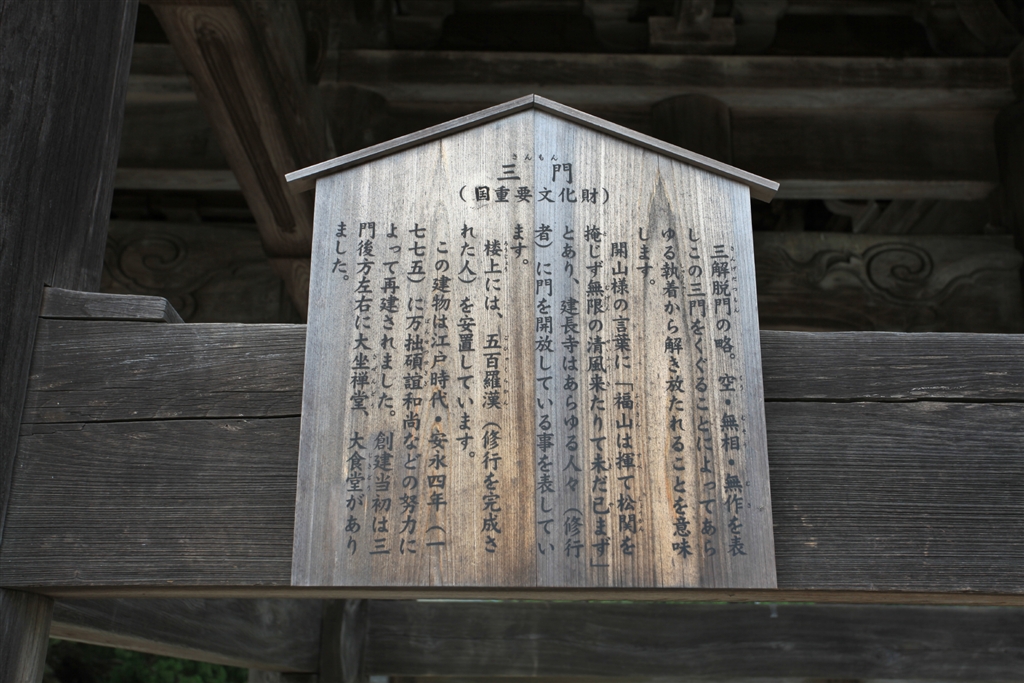 三門
(国重要文化財)
三解脱門の略。空・無相・無作を表
しこの三門をくぐることによってあら
ゆる執着から解き放たれることを意味
します。
開山様の言葉に「福山は揮て松関を
掩しず無限の清風来たりて未だ已まず」
とあり、建長寺はあらゆる人々(修行
者)に門を開放している事を表してい
ます。
楼上には、五百羅漢(修行を完成さ
れた人)を安置しています。
この建物は江戸時代・安永四年(一
七七五)に万拙碩誼和尚などの努力に
よって再建されました。創建当初は三
門後方左右に大坐禅堂、大食堂があり
ました。